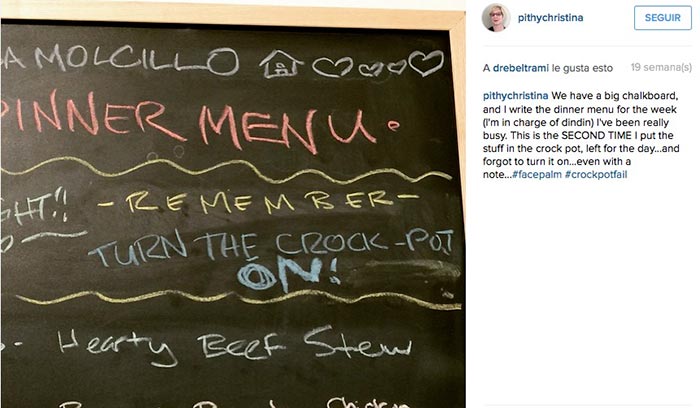 A MOLCILLO
DINNER MENU.
GHT!! - REMEMBER -
TURN THE CROCK-POT
ON!
- Hearty Beef Stew
Chicken
pithychristina
SEGUIR
A drebeltrami le gusta esto 19 semana(s)
pithychristina We have a big chalkboard,
and I write the dinner menu for the week
(I'm in charge of dindin) I've been really
busy. This is the SECOND TIME I put the
stuff in the crock pot, left for the day...and
forgot to turn it on...even with a
note...#facepalm #crockpotfail